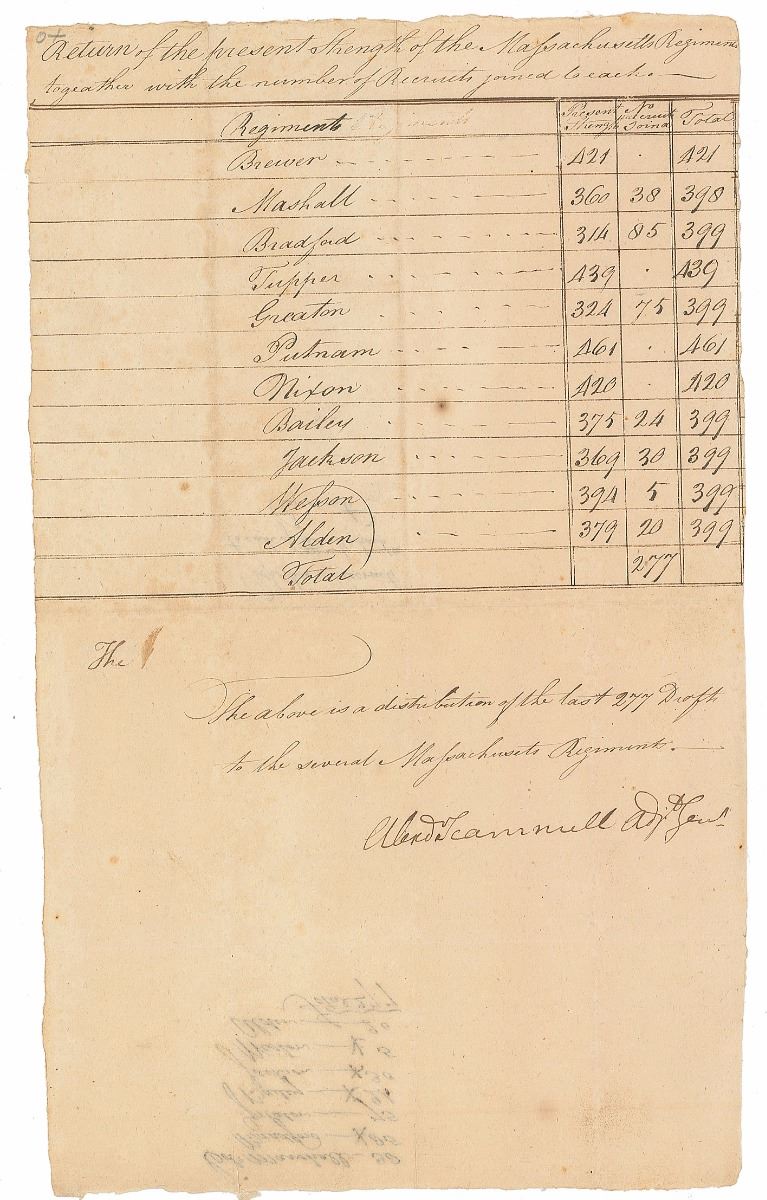 Return of the present Strength of the Massachusetts Regiments
togeather with the number of Recruits joined to each. —
Regiments Present Strength No Recruits Joined Total
Brewer 421 . 421
Mashall 360 38 398
Bradford 314 85 399
Tupper 439 . 439
Greaton 324 75 399
Putnam 461 . 461
Nixon 420 . 420
Bailey 375 24 399
Jackson 369 30 399
Wesson 394 5 399
Alden 379 20 399
Total 277
The
The above is a distribution of the last 277 Drafts
to the several Massachusets Regiments. —
Alexdr Scammell Adjt Genl